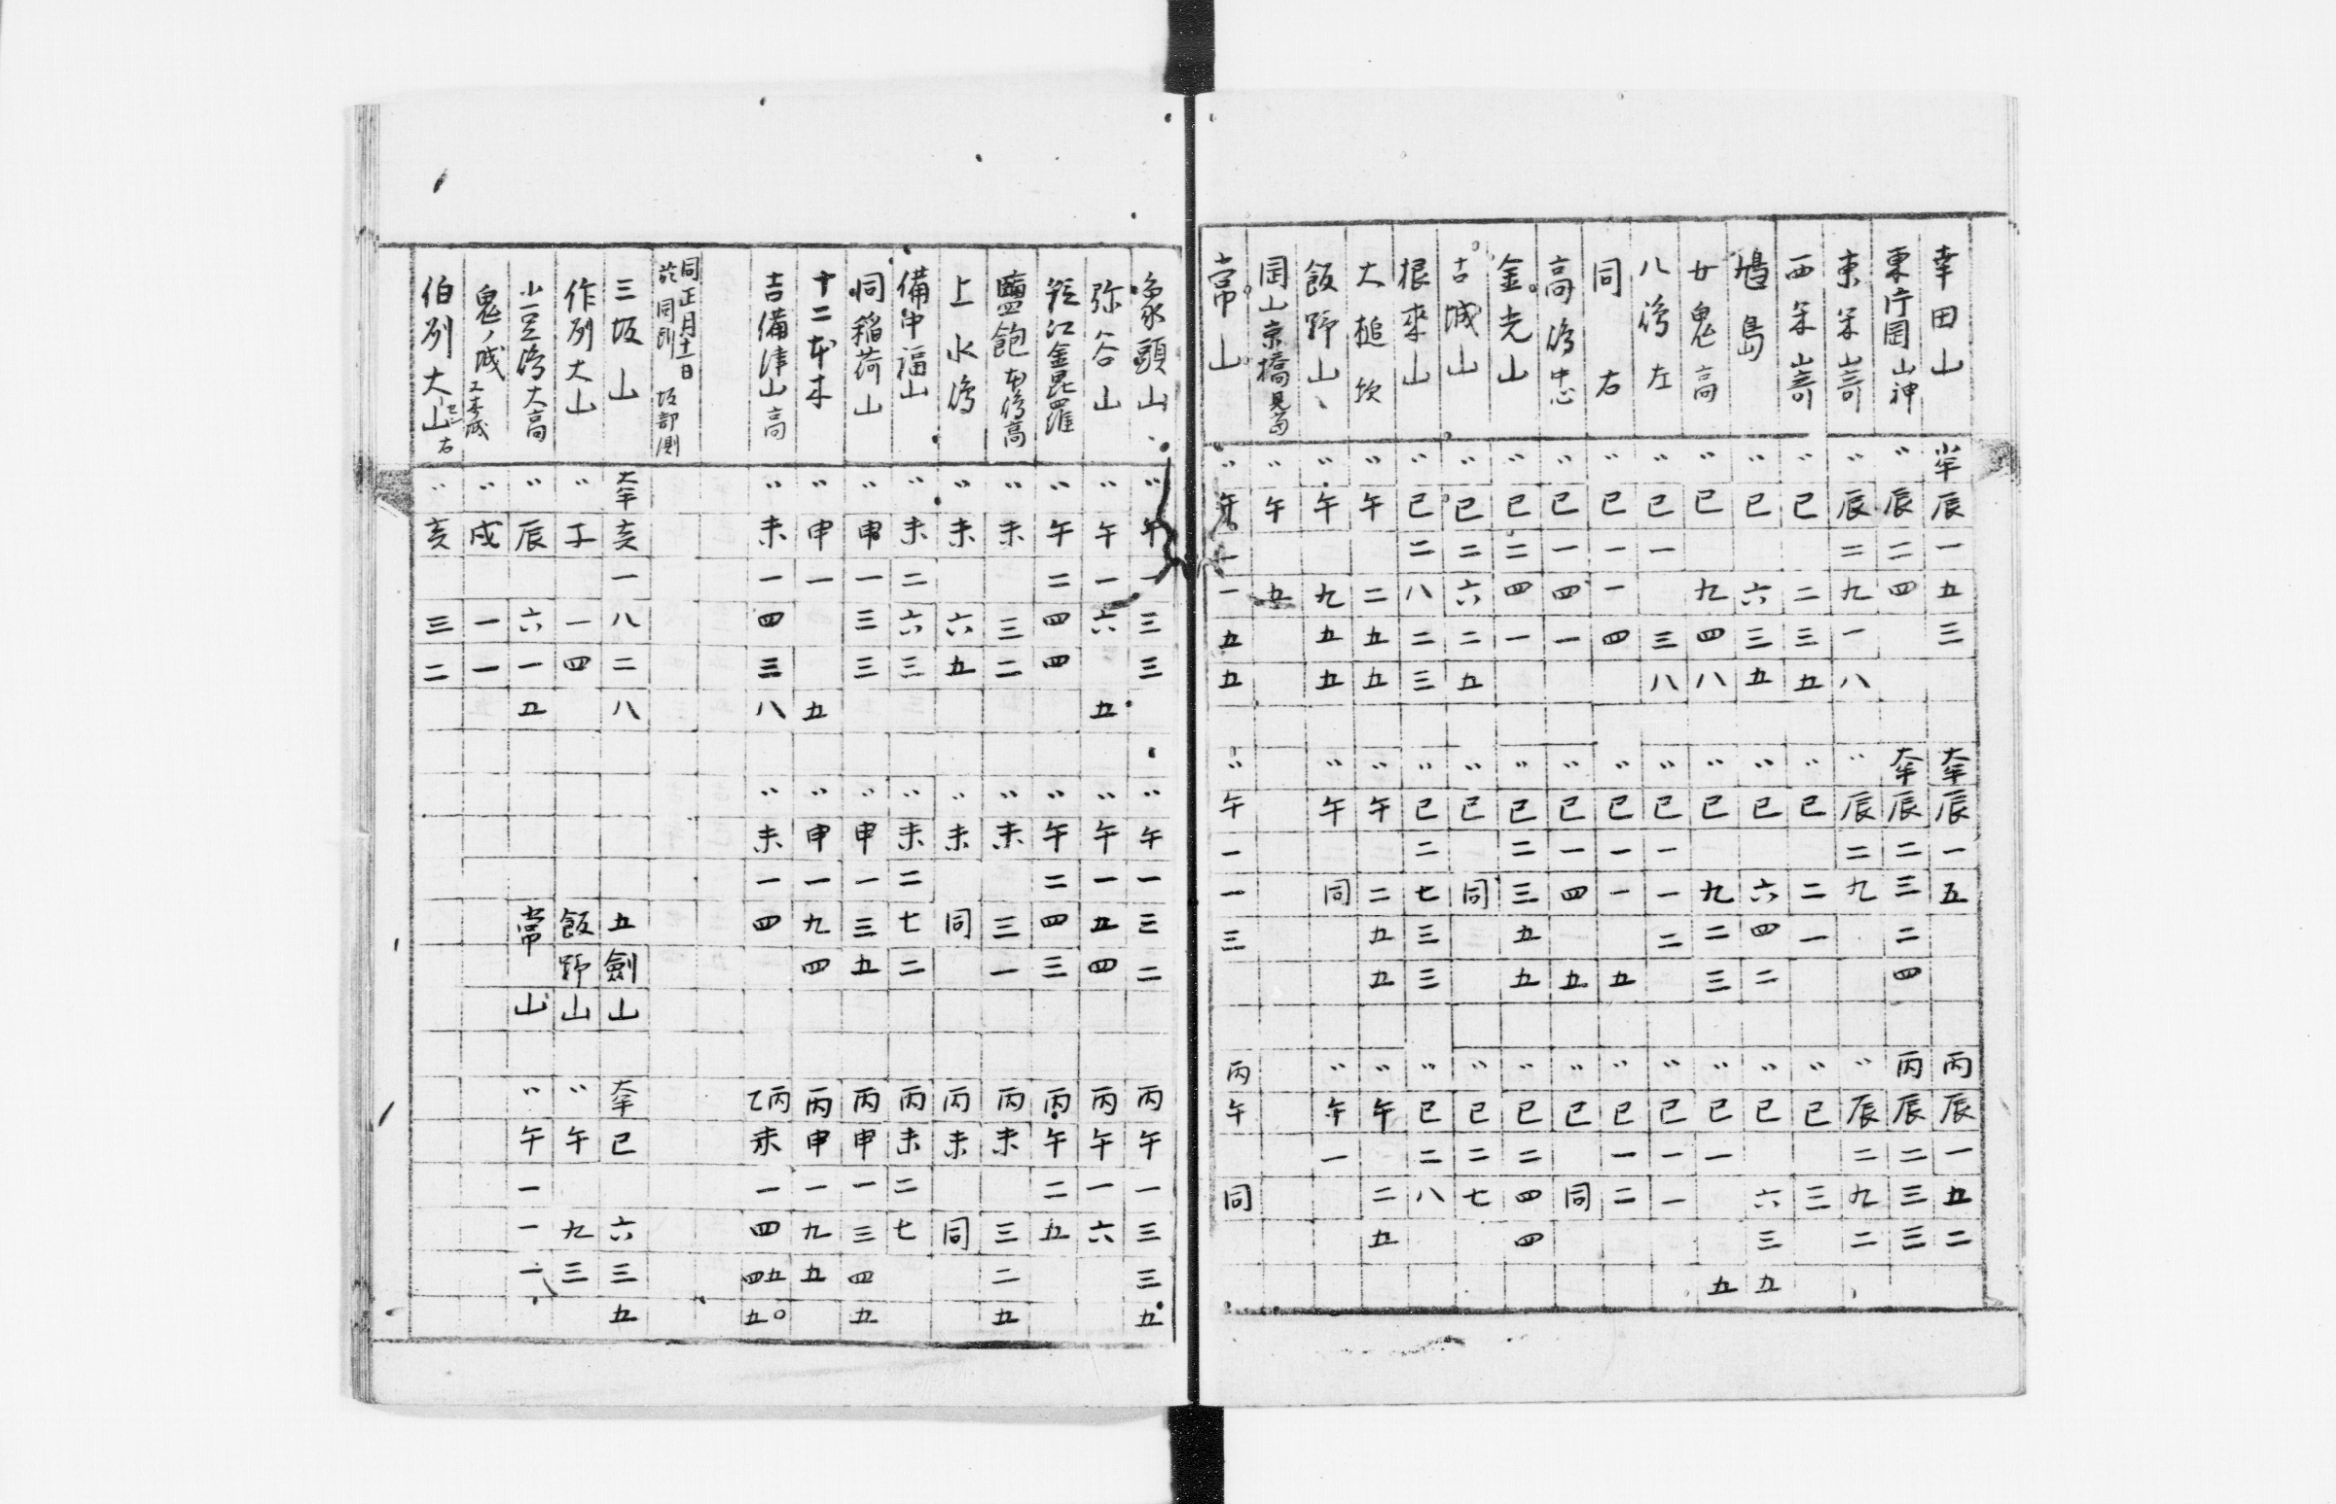 幸田山 小半 辰 一 五 三 大半 辰 一 五 丙 辰 一 五 二
東庁岡山神 〃 辰 二 四 大半 辰 二 三 二 四 丙 辰 二 三 三
東 嵜 〃 辰 二 九 一 八 〃 辰 二 九 〃 辰 二 九 二
西 嵜 〃 巳 二 三 五 〃 巳 二 一 〃 巳 三
島 〃 巳 六 三 五 〃 巳 六 四 二 〃 巳 六 三 五
廿鬼高 〃 巳 九 四 八 〃 巳 九 二 三 〃 巳 一 五
八濱左 〃 巳 一 三 八 〃 巳 一 一 二 〃 巳 一 一
同右 〃 巳 一 一 四 〃 巳 一 一 五 〃 巳 一 二
高濱中心 〃 巳 一 四 一 〃 巳 一 四 五 〃 巳 同
金光山 〃 巳 二 四 一 〃 巳 二 三 五 五 〃 巳 二 四 四
古城山 〃 巳 二 六 二 五 〃 巳 同 〃 巳 二 七
根来山 〃 巳 二 八 二 三 〃 巳 二 七 三 三 〃 巳 二 八
大槌 〃 午 二 五 五 〃 午 二 五 五 〃 午 二 五
飯野山、 〃 午 九 五 五 〃 午 同 〃 午 一
岡山京橋見當 〃 午 五
常山 〃 午 一 一 五 五 〃 午 一 一 三 丙 午 同
象頭山、 〃 午 一 三 三 〃 午 一 三 二 丙 午 一 三 三 五
弥谷山 〃 午 一 六 五 〃 午 一 五 四 丙 午 一 六
江金毘羅 〃 午 二 四 四 〃 午 二 四 三 丙 午 二 五
鹽飽本濱高 〃 未 三 二 〃 未 三 一 丙 未 三 二 五
上水濱 〃 未 六 五 〃 未 同 丙 未 同
備中福山 〃 未 二 六 三 〃 未 二 七 二 丙 未 二 七
同稲荷山 〃 申 一 三 三 〃 申 一 三 五 丙 申 一 三 四 五
十二本木 〃 申 一 五 〃 申 一 九 四 丙 申 一 九 五
吉備津山高 〃 未 一 四 三 八 〃 未 一 四 丙乙 未 一 四 五四 〇五
同正月十一日
於同所 坂部測
三坂山 大半 亥 一 八 二 八 五劍山 大半 巳 六 三 五
作刕大山 〃 子 一 四 飯野山 〃 午 九 三
小豆濱大高 〃 辰 六 一 五 常山 〃 午 一 一 一
鬼ノ城 〃 戌 一 一
伯刕大山 右 〃 亥 三 二